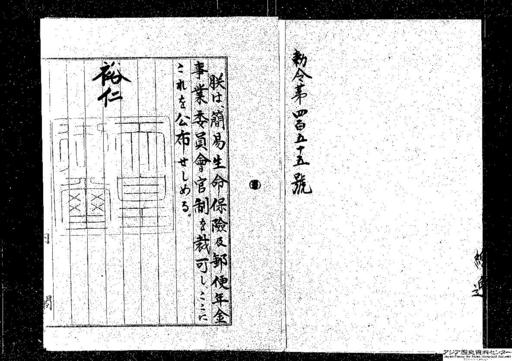 勅令第四百五十五號
朕は、簡易生命保險及郵便年金
事業委員會官制を裁可し、ここに
これを公布せしめる。
裕仁
内閣
アジア歴史資料センター